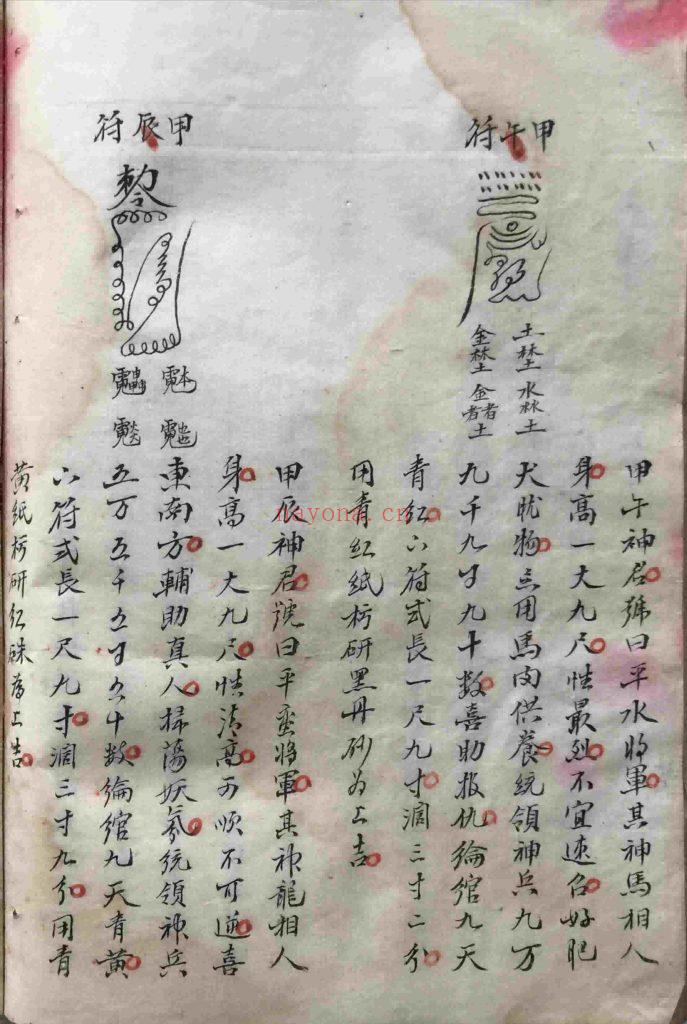 甲午符
土 埜 水 林 土
金 埜 金 土
甲午神君號曰平水将軍其神馬相人
身高一丈九尺性最烈不宜速召好肥
犬 物忌用馬肉供養統領神兵九万
九千九百九十数喜助报仇綸綰九天
青红六符式長一尺九寸濶三寸二分
用青红紙 研黑丹砂为上吉
甲辰符
敕令
甲辰神君號曰平蛮将軍其神龍相人
身高一丈九尺性清高可順不可逆喜
東南方輔助真人掃蕩妖氛統領神兵
五万五千五百六十数綸綰九天青黄
六符式長一尺九寸濶三寸九分用青
黄紙 研红硃为上吉
nayona.cn